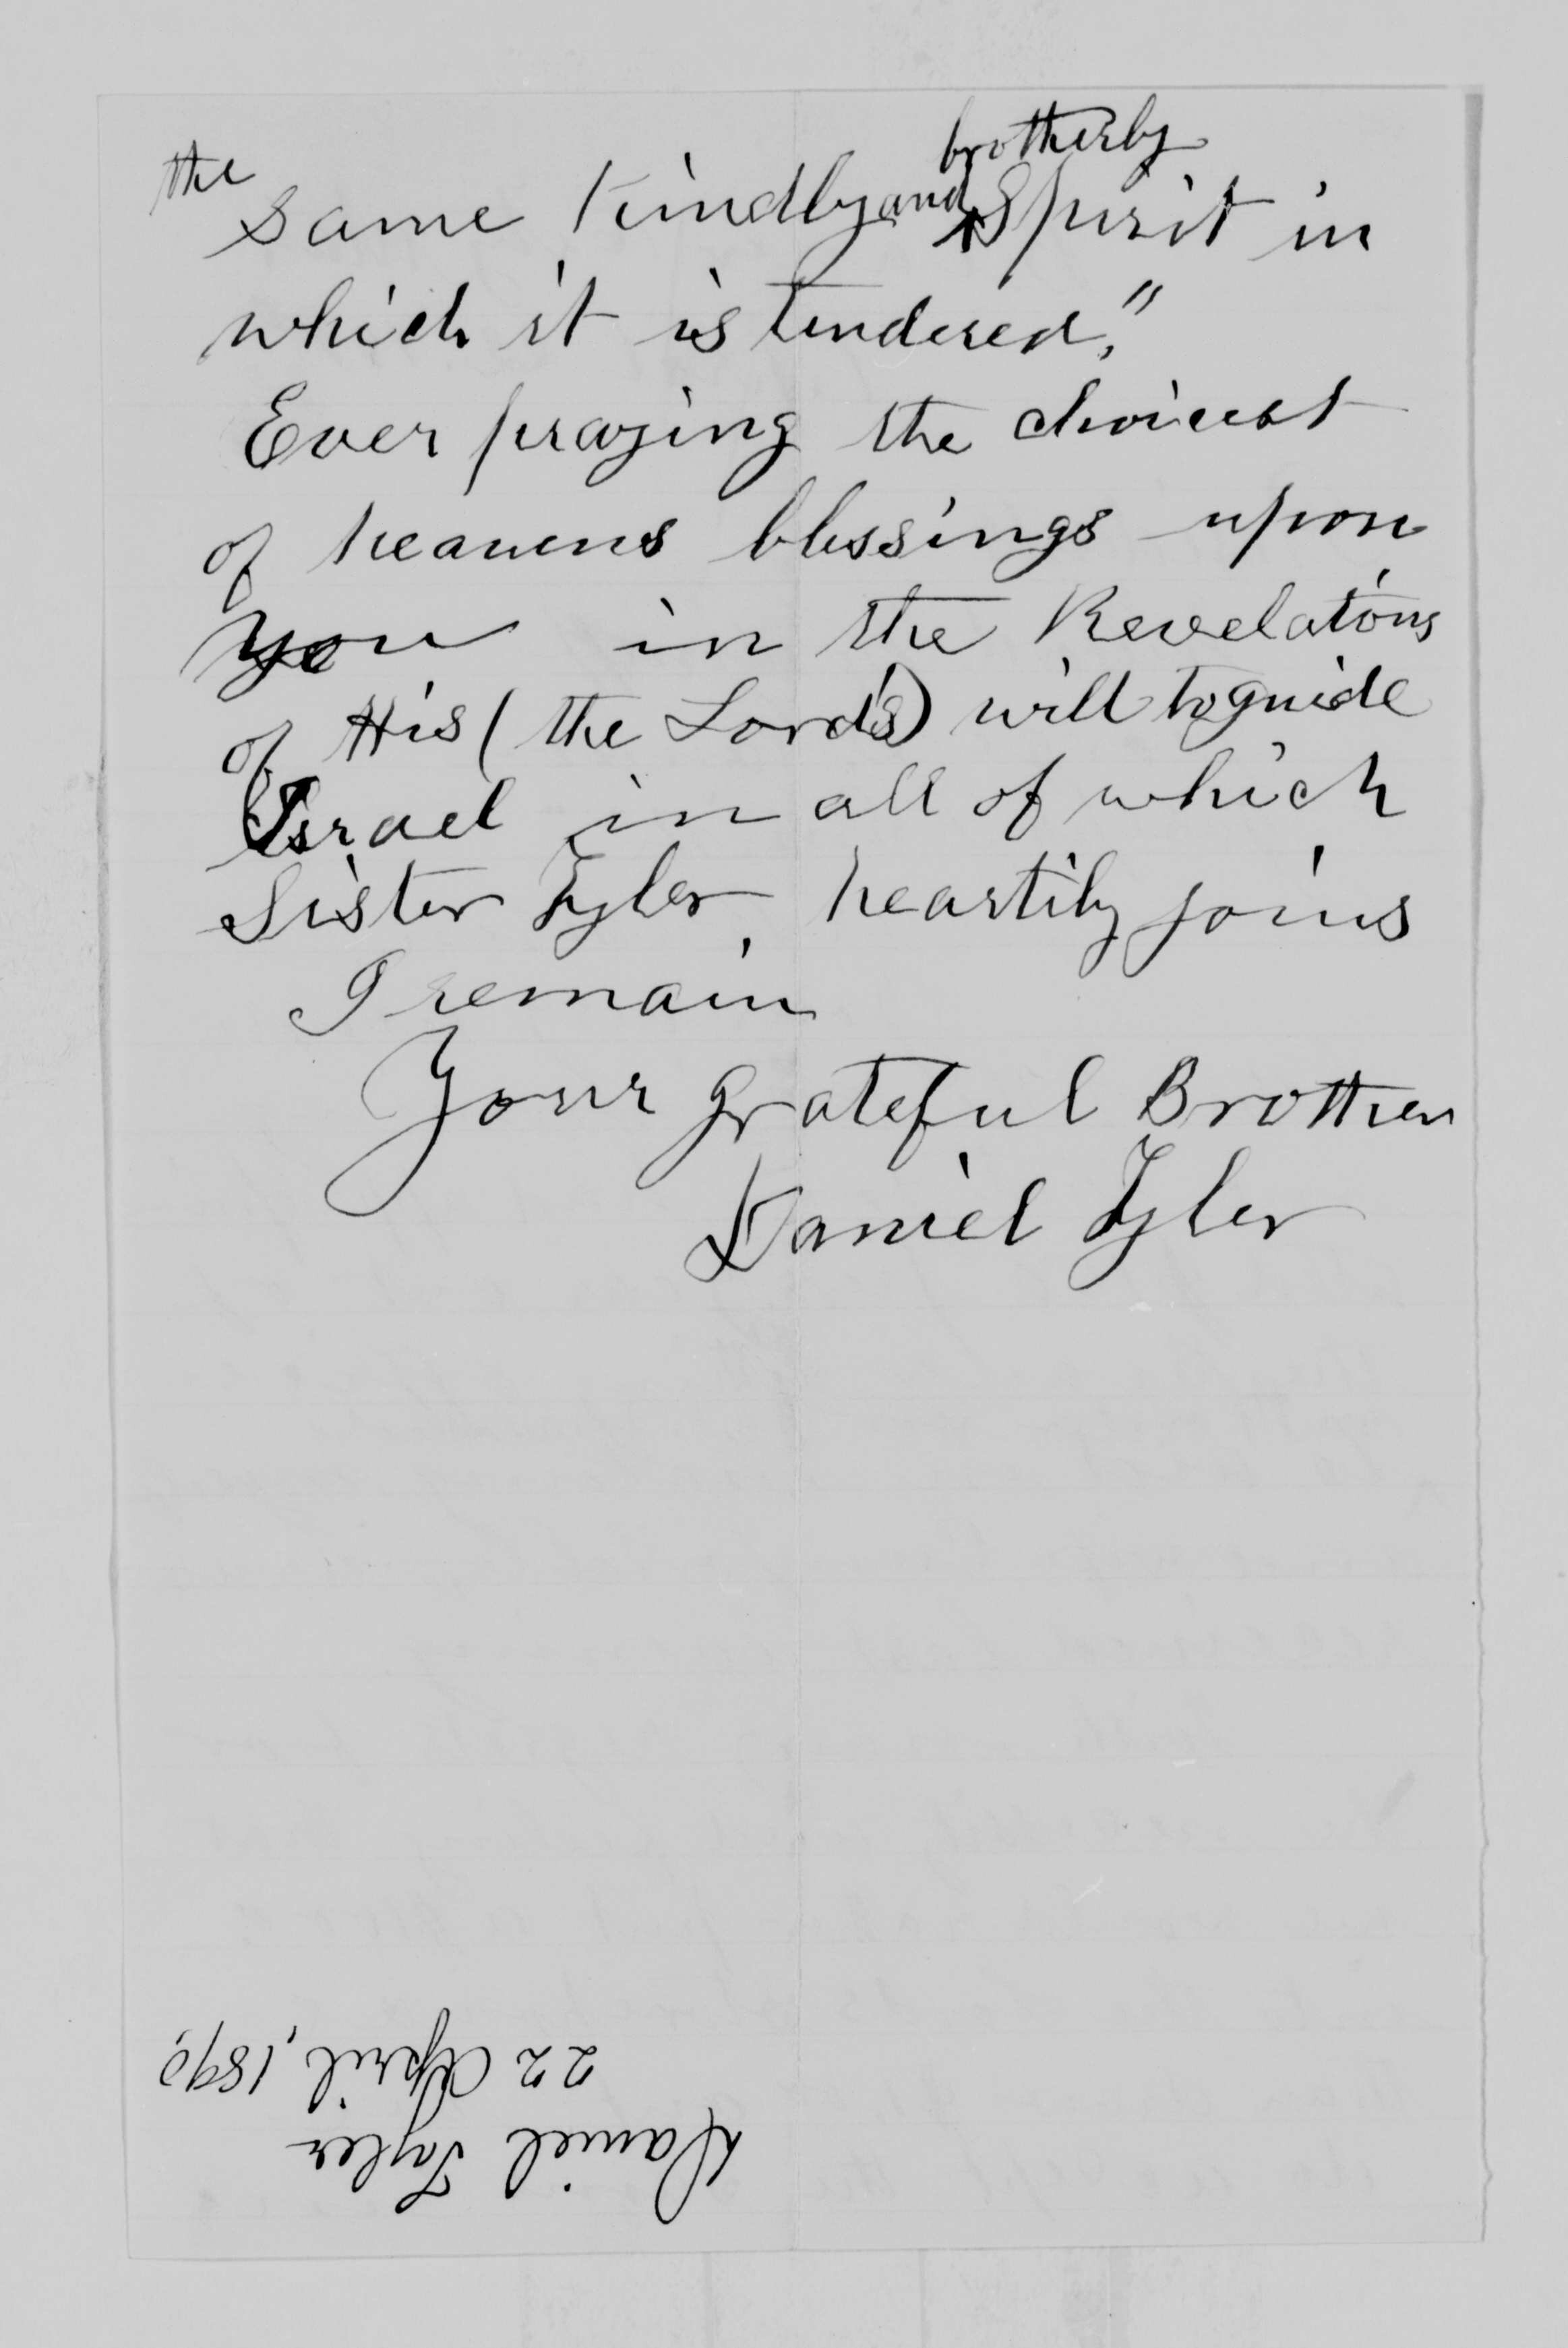 the same kindly and brotherly Spirit in
which it is tendered."
Ever praying the choicest
of heavens blessings upon
you in the Revelations
of His (the Lord's) will to guide
Israel in all of which
Sister Tyler heartily joins
I remain
Your grateful Brother
Daniel Tyler
Daniel Tyler
22 April, 1890.